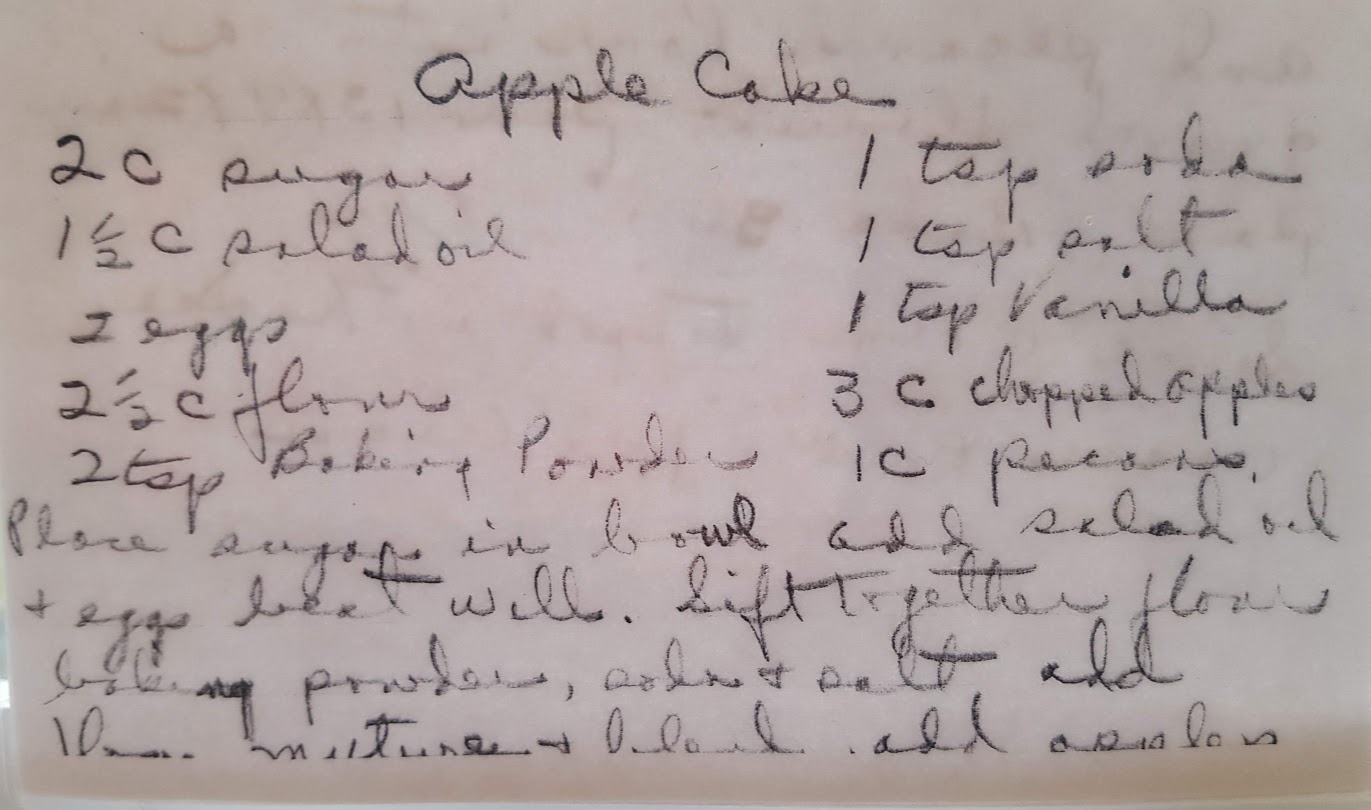 Apple Cake
2 C sugar 1 tsp soda
1 1/2 C salad oil 1 tsp salt
2 eggs 1 tsp Vanilla
2 1/2 C flour 3 C chopped apples
2 tsp Baking Powder 1 C pecans.
Place sugar in bowl add salad oil
+ eggs beat well. Sift together flour
baking powder, soda + salt, add
mixture + blend. add apples